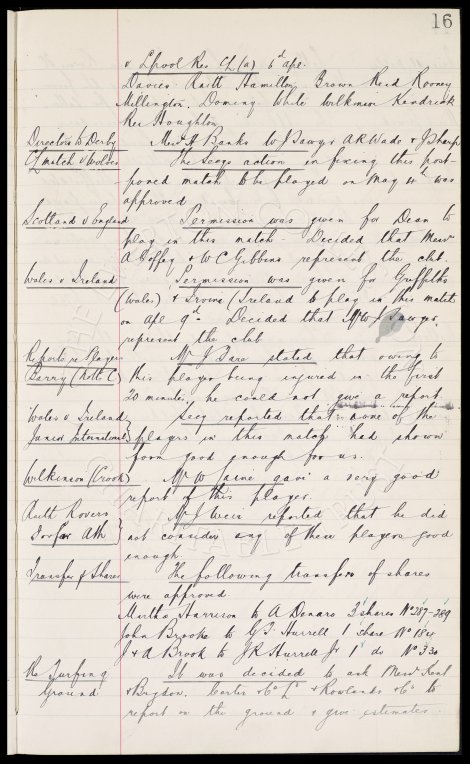 16
v L'pool Res CL (a) 6th Apl.
Davies Raitt Hamilton Brown Reid Rooney
Millington. Dominy White Wilkinson Kendrick
Res Houghton
Directors to Derby Messrs H Banks W J Sawyer A R Wade & J Sharp
CL match v Wolves The Secys action in fixing this post-
poned match to be played on May 4th was
approved
Scotland v England Permission was given for Dean to
play in this match - Decided that Messrs
A Coffey & W C Gibbins represent the club.
Wales v Ireland Permission was given for Griffiths
(Wales) & Irvine (Ireland to play in this match
on Apl 9th - Decided that Mr W J Sawyer
represent the club
Report re Player Mr J Fare stated that owing to
Barry (Notts C) this player being injured in the first
20 minutes, he could not give a report.
Wales v Ireland Secy reported that none of the
Junior International players in this match had shown
form good enough for us.
Wilkinson (Crook) Mr W gave a very good
report of this player.
Raith Rovers Mr J Weir reported that he did
Forfar Ath not consider any of these players good
enough.
Transfer of Shares The following transfers of shares
were approved
Martha Harrison to A Denaro 3 shares No 287-289
John Brooke to G T Hurrell 1 share No 184
J & A Brook to J R Hurrell Jr 1 do No 330
Re Turfing It was decided to ask Messrs Kent
Ground & Brydon. Carter & Co Ld & Rowlands & Co to
report on the ground & give estimates.